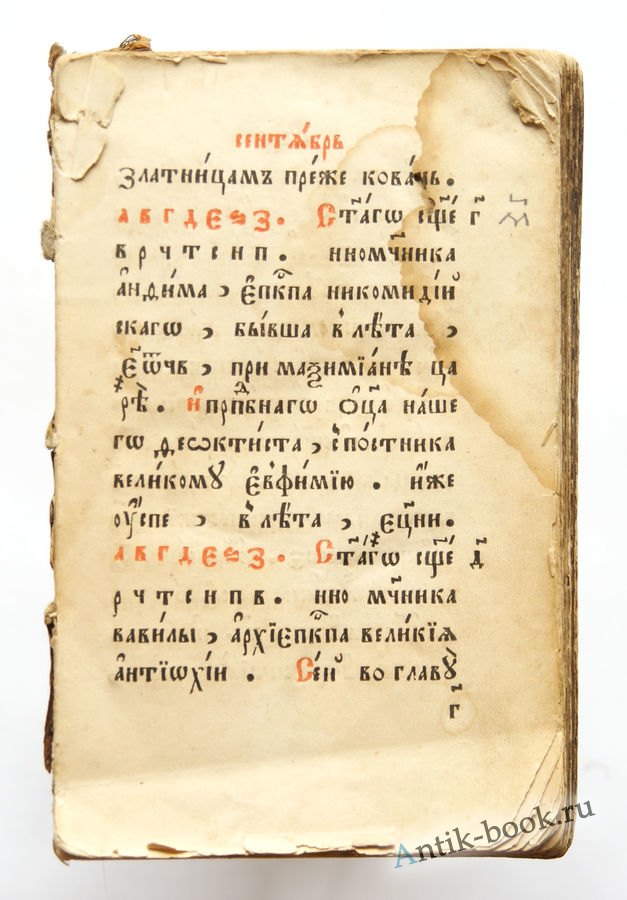 сентѧ́брь
Златни́цамъ пре́же кова́чь.
а в г д є ѕ з. Ст҃а́гѡ сщ҃е́ г҃
в р ч т с и п. нномч҃ника
а҆нѳи́ма, є҆пкⷭ҇па никомиді́й
скагѡ, бы́вша в лѣ́та,
є҆ѿчв, при маѯимїа́нѣ ца
рѣ̀. И҆ прпⷣбнагѡ Ѻ҆ц҃а̀ на́ше
гѡ ѳеѡкти́ста, спо́стника
вели́комꙋ Є҆вфи́мїю. и҆́же
оу҆спе, в лѣ́та, єц҃ни.
а в г д є ѕ з. Ст҃а́гѡ сщ҃е́ д҃
р ч т с и п в. нно мч҃ника
вави́лы, а҆рхїєпкⷭ҇па вели́кїѧ
а҆нтїѡхі́и. Се́й во главꙋ̀
г҃
Antik-book.ru